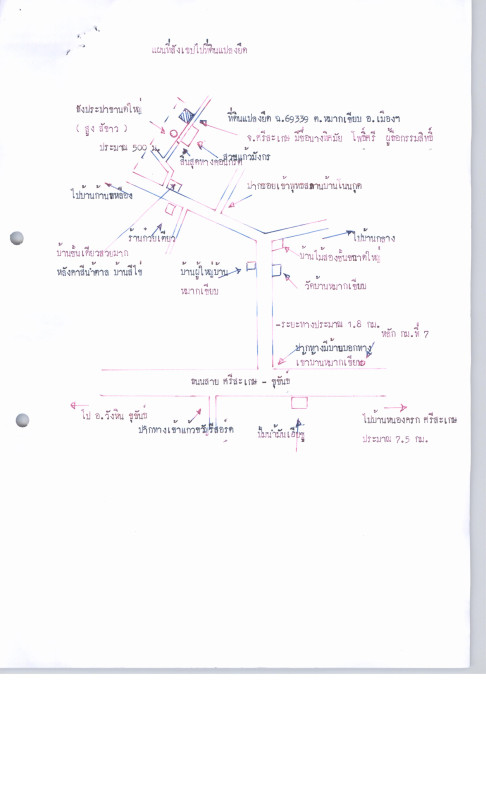 แผนที่สังเขปไปที่ดินแปลงยึด
ถังประปาขนาดใหญ่
( สูง สีขาว )
ประมาณ 500 ม.
ที่ดินแปลงยึด ฉ.69339 ต.หมากเขียบ อ.เมืองฯ
จ.ศรีสะเกษ มีชื่อนาง โพธิ์ศรี ผู้ถือกรรมสิทธิ์
สวนแก้วมังกร
สิ้นสุดทางคอนกรีต
ปากซอยเข้า บ้านโนนกูด
ไปบ้านก้านเหลือง
ร้านก๋วยเตี๋ยว
บ้านชั้นเดียวสวยมาก
หลังคาสีน้ำตาล บ้านสีไข่
บ้านผู้ใหญ่บ้าน
หมากเขียบ
ไปบ้านกลาง
บ้านไม้สองชั้นขนาดใหญ่
วัดบ้านหมากเขียบ
-ระยะทางประมาณ 1.8 กม.
หลัก กม.ที่ 7
ปากทางมีป้ายบอกทาง
เข้าบ้านหมากเขียบ
ถนนสาย ศรีสะเกษ - ขุขันธ์
ไป อ.วังหิน ขุขันธ์
ปากทางเข้าแก้ว รีสอร์ต
ปั๊มน้ำมัน
ไปบ้านหนองครก ศรีสะเกษ
ประมาณ 7.5 กม.